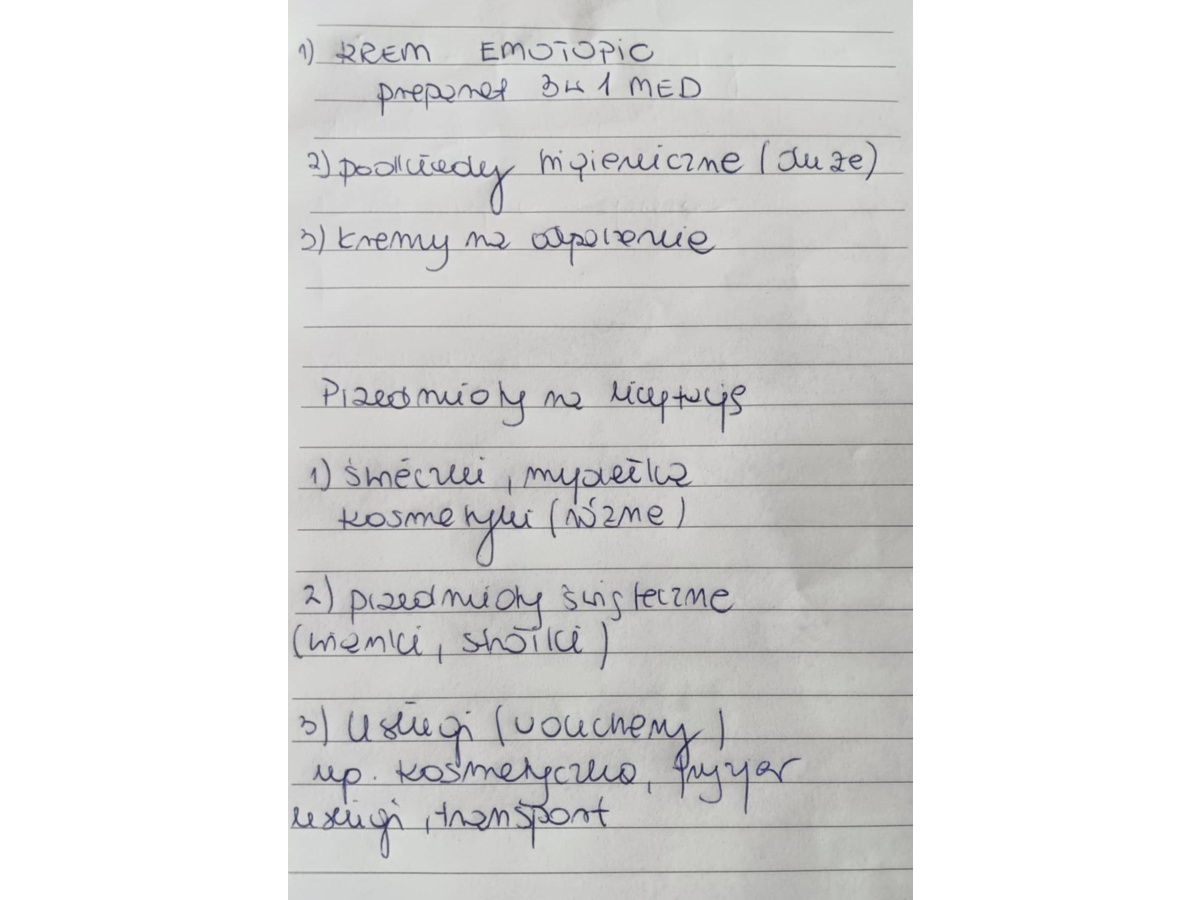 1) KREM EMOTOPIC
preparat 3w1 MED
2) podkłady higieniczne (duże)
3) kremy na odparzenie
Przedmioty na licytację
1) świeczki, mydełka
kosmetyki (różne)
2) przedmioty świąteczne
(wianki, stroiki)
3) Usługi (vouchery)
np. kosmetyczka, fryzjer
usługi, transport